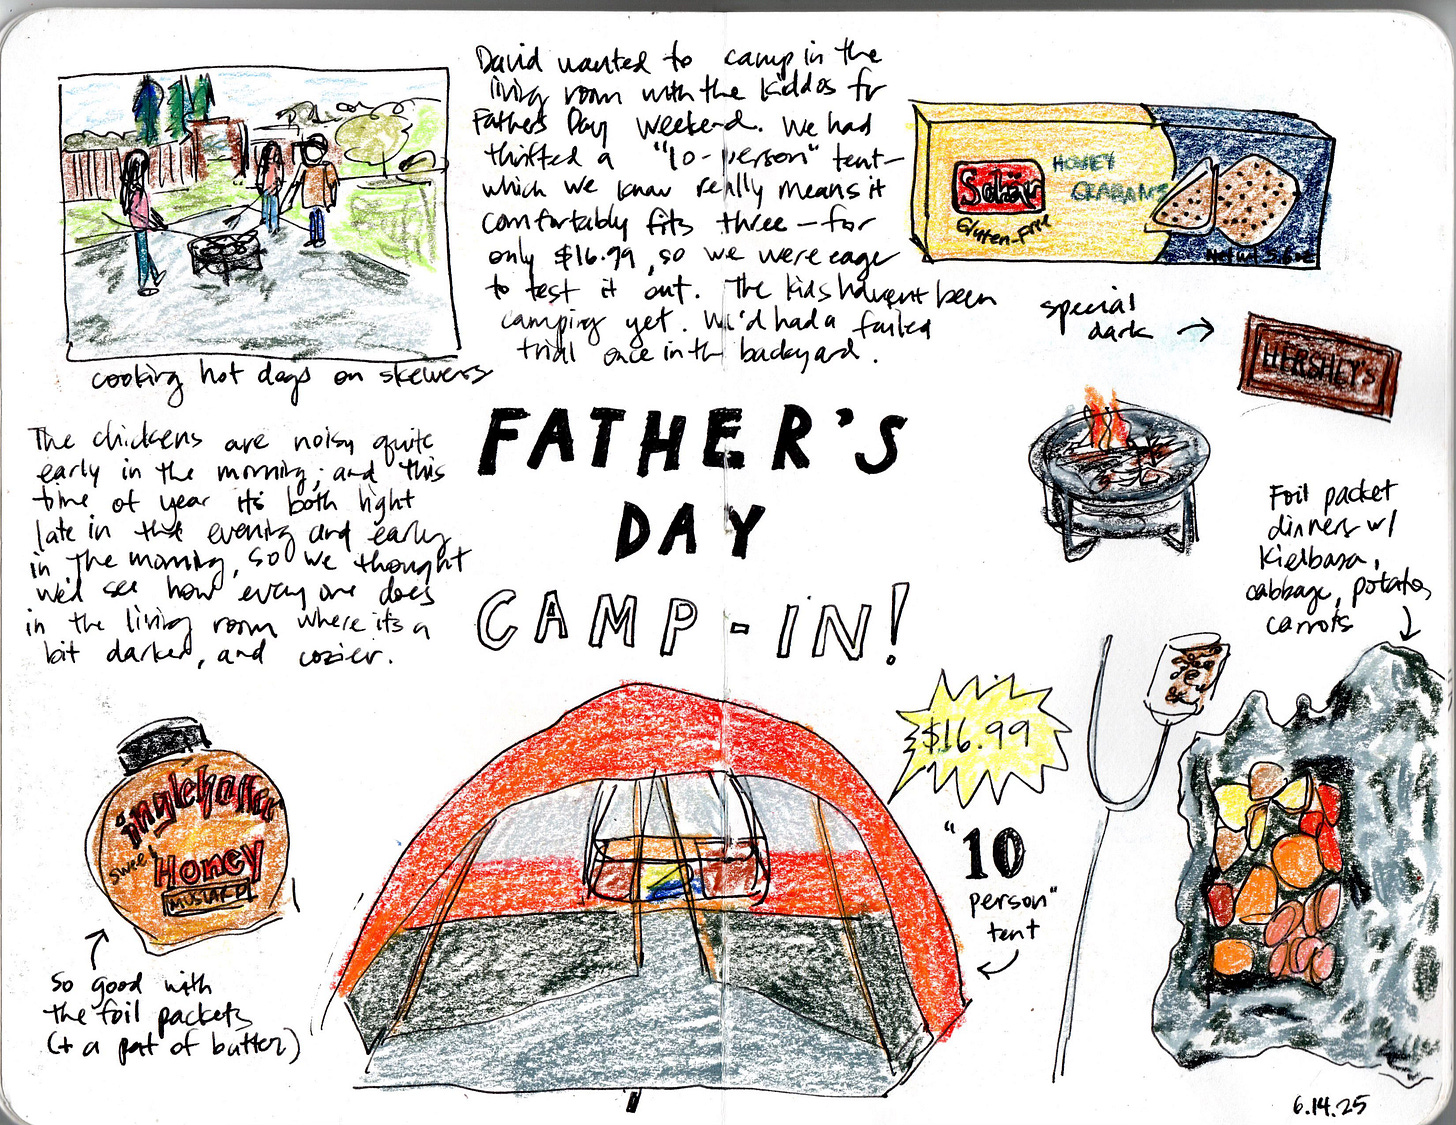 David wanted to camp in the
living room with the kiddos for
Father's Day weekend. We had
thrifted a "10-person" tent—
which we know really means it
comfortably fits three — for
only $16.99, so we were eager
to test it out. The kids haven't been
camping yet. We'd had a failed
trial once in the backyard.
cooking hot dogs on skewers
Schär
Gluten-Free
HONEY
GRAHAMS
Net wt 5.6 oz
special
dark
HERSHEY'S
FATHER'S
DAY
CAMP-IN!
The chickens are noisy quite
early in the morning; and this
time of year it's both light
late in the evening and early
in the morning, so we thought
we'd see how everyone does
in the living room where it's a
bit darker, and cozier.
Foil packet
dinners w/
Kielbasa,
cabbage, potatoes,
carrots
inglehoffer
sweet
Honey
MUSTARD
So good with
the foil packets
(+ a pat of butter)
$16.99
"10
person"
tent
6.14.25